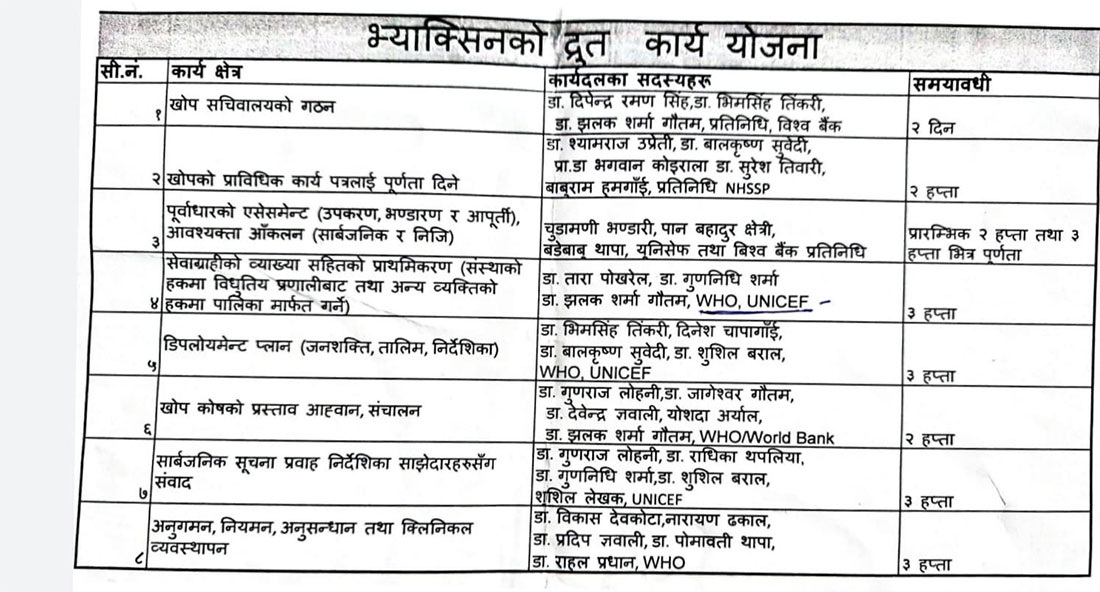 भ्याक्सिनको द्रुत कार्य योजना
सी.नं. कार्य क्षेत्र कार्यदलका सदस्यहरू समयावधी
१ खोप सचिवालयको गठन डा. दिपेन्द्र रमण सिंह,डा. भिमसिंह तिंकरी,
डा. झलक शर्मा गौतम, प्रतिनिधि, विश्व बैंक २ दिन
डा. श्यामराज उप्रेती, डा. बालकृष्ण सुवेदी,
प्रा.डा भगवान कोइराला डा. सुरेश तिवारी,
२ खोपको प्राविधिक कार्य पत्रलाई पूर्णता दिने बाबुराम हुमगाँई, प्रतिनिधि NHSSP २ हप्ता
पूर्वाधारको एसेसमेन्ट (उपकरण, भण्डारण र आपूर्ती),
३ आवश्यक्ता आँकलन (सार्बजनिक र निजि) चुडामणी भण्डारी, पान बहादुर क्षेत्री,
बडेबाबु थापा, यूनिसेफ तथा बिश्व बैंक प्रतिनिधि प्रारम्भिक २ हप्ता तथा ३
हप्ता भित्र पूर्णता
सेवाग्राहीको व्याख्या सहितको प्राथमिकरण (संस्थाको
हकमा विधुतिय प्रणालीबाट तथा अन्य व्यक्तिको
४ हकमा पालिका मार्फत गर्ने) डा. तारा पोखरेल, डा. गुणनिधि शर्मा
डा. झलक शर्मा गौतम, WHO, UNICEF ३ हप्ता
५ डिपलोयमेन्ट प्लान (जनशक्ति, तालिम, निर्देशिका) डा. भिमसिंह तिंकरी, दिनेश चापागाँई,
डा. बालकृष्ण सुवेदी, डा. शुशिल बराल,
WHO, UNICEF ३ हप्ता
६ खोप कोषको प्रस्ताव आह्वान, संचालन डा. गुणराज लोहनी,डा. जागेश्वर गौतम,
डा. देवेन्द्र ज्ञवाली, योशदा अर्याल,
डा. झलक शर्मा गौतम, WHO/World Bank २ हप्ता
सार्बजनिक सूचना प्रवाह निर्देशिका साझेदारहरुसँग
७ संवाद डा. गुणराज लोहनी, डा. राधिका थपलिया,
डा. गुणनिधि शर्मा,डा. शुशिल बराल,
शुशिल लेखक, UNICEF ३ हप्ता
अनुगमन, नियमन, अनुसन्धान तथा क्लिनिकल
८ व्यवस्थापन डा. विकास देवकोटा,नारायण ढकाल,
डा. प्रदिप ज्ञवाली, डा. पोमावती थापा,
डा. राहुल प्रधान, WHO ३ हप्ता